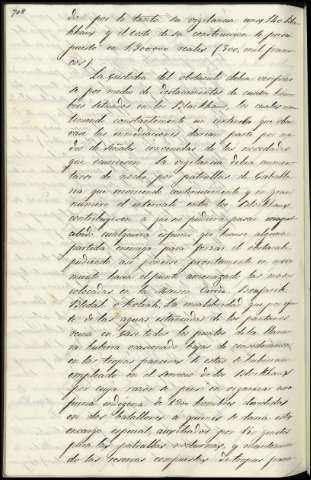 708
da por lo tanto su vigilancia unos 140 Block
khaus y el costo de su construccion se presu
puestó en 1.300.000 reales (300. mil fran
cos)
La custodia del obstaculo debia verificar
se por medio de destacamentos de cuatro hom
bres situados en los Blockhaus, los cuales man
teniendo constantemente un centinela que obser
vase las inmediaciones darian parte por me
dio de señales convenidas de las novedades
que ocurriesen. La vigilancia debia aumen
tarse de noche por patrullas de Caballe
ria que recorriendo continuamente y en gran
numero el intervalo entre los Blockhaus
contribuyesen á que no pudiera pasar
cualquiera espacio que tuviese alguna
partida enemiga para forzar el obstaculo
pudiendo asi ponerse prontamente en movi
miento hacia el punto amenazado las masas
colocadas en la Maison Carrée, Boufarik,
Blidah y Koleah. La insalubridad que por efec
to de las aguas estancadas de los pantanos
reina en casi todos los puntos de la llanu
ra hubiera ocasionado bajas de consideracion
en las tropas francesas si estas se hubieran
empleado en el servicio de los Blockhaus
por cuya razon se pensó en organizar una
fuerza indigena de 1200 hombres divididos
en dos batallones á quienes se daria este
encargo especial, auxiliados por los
para las patrullas nocturnas, y manteniendo
de las reservas compuestas de tropas fran